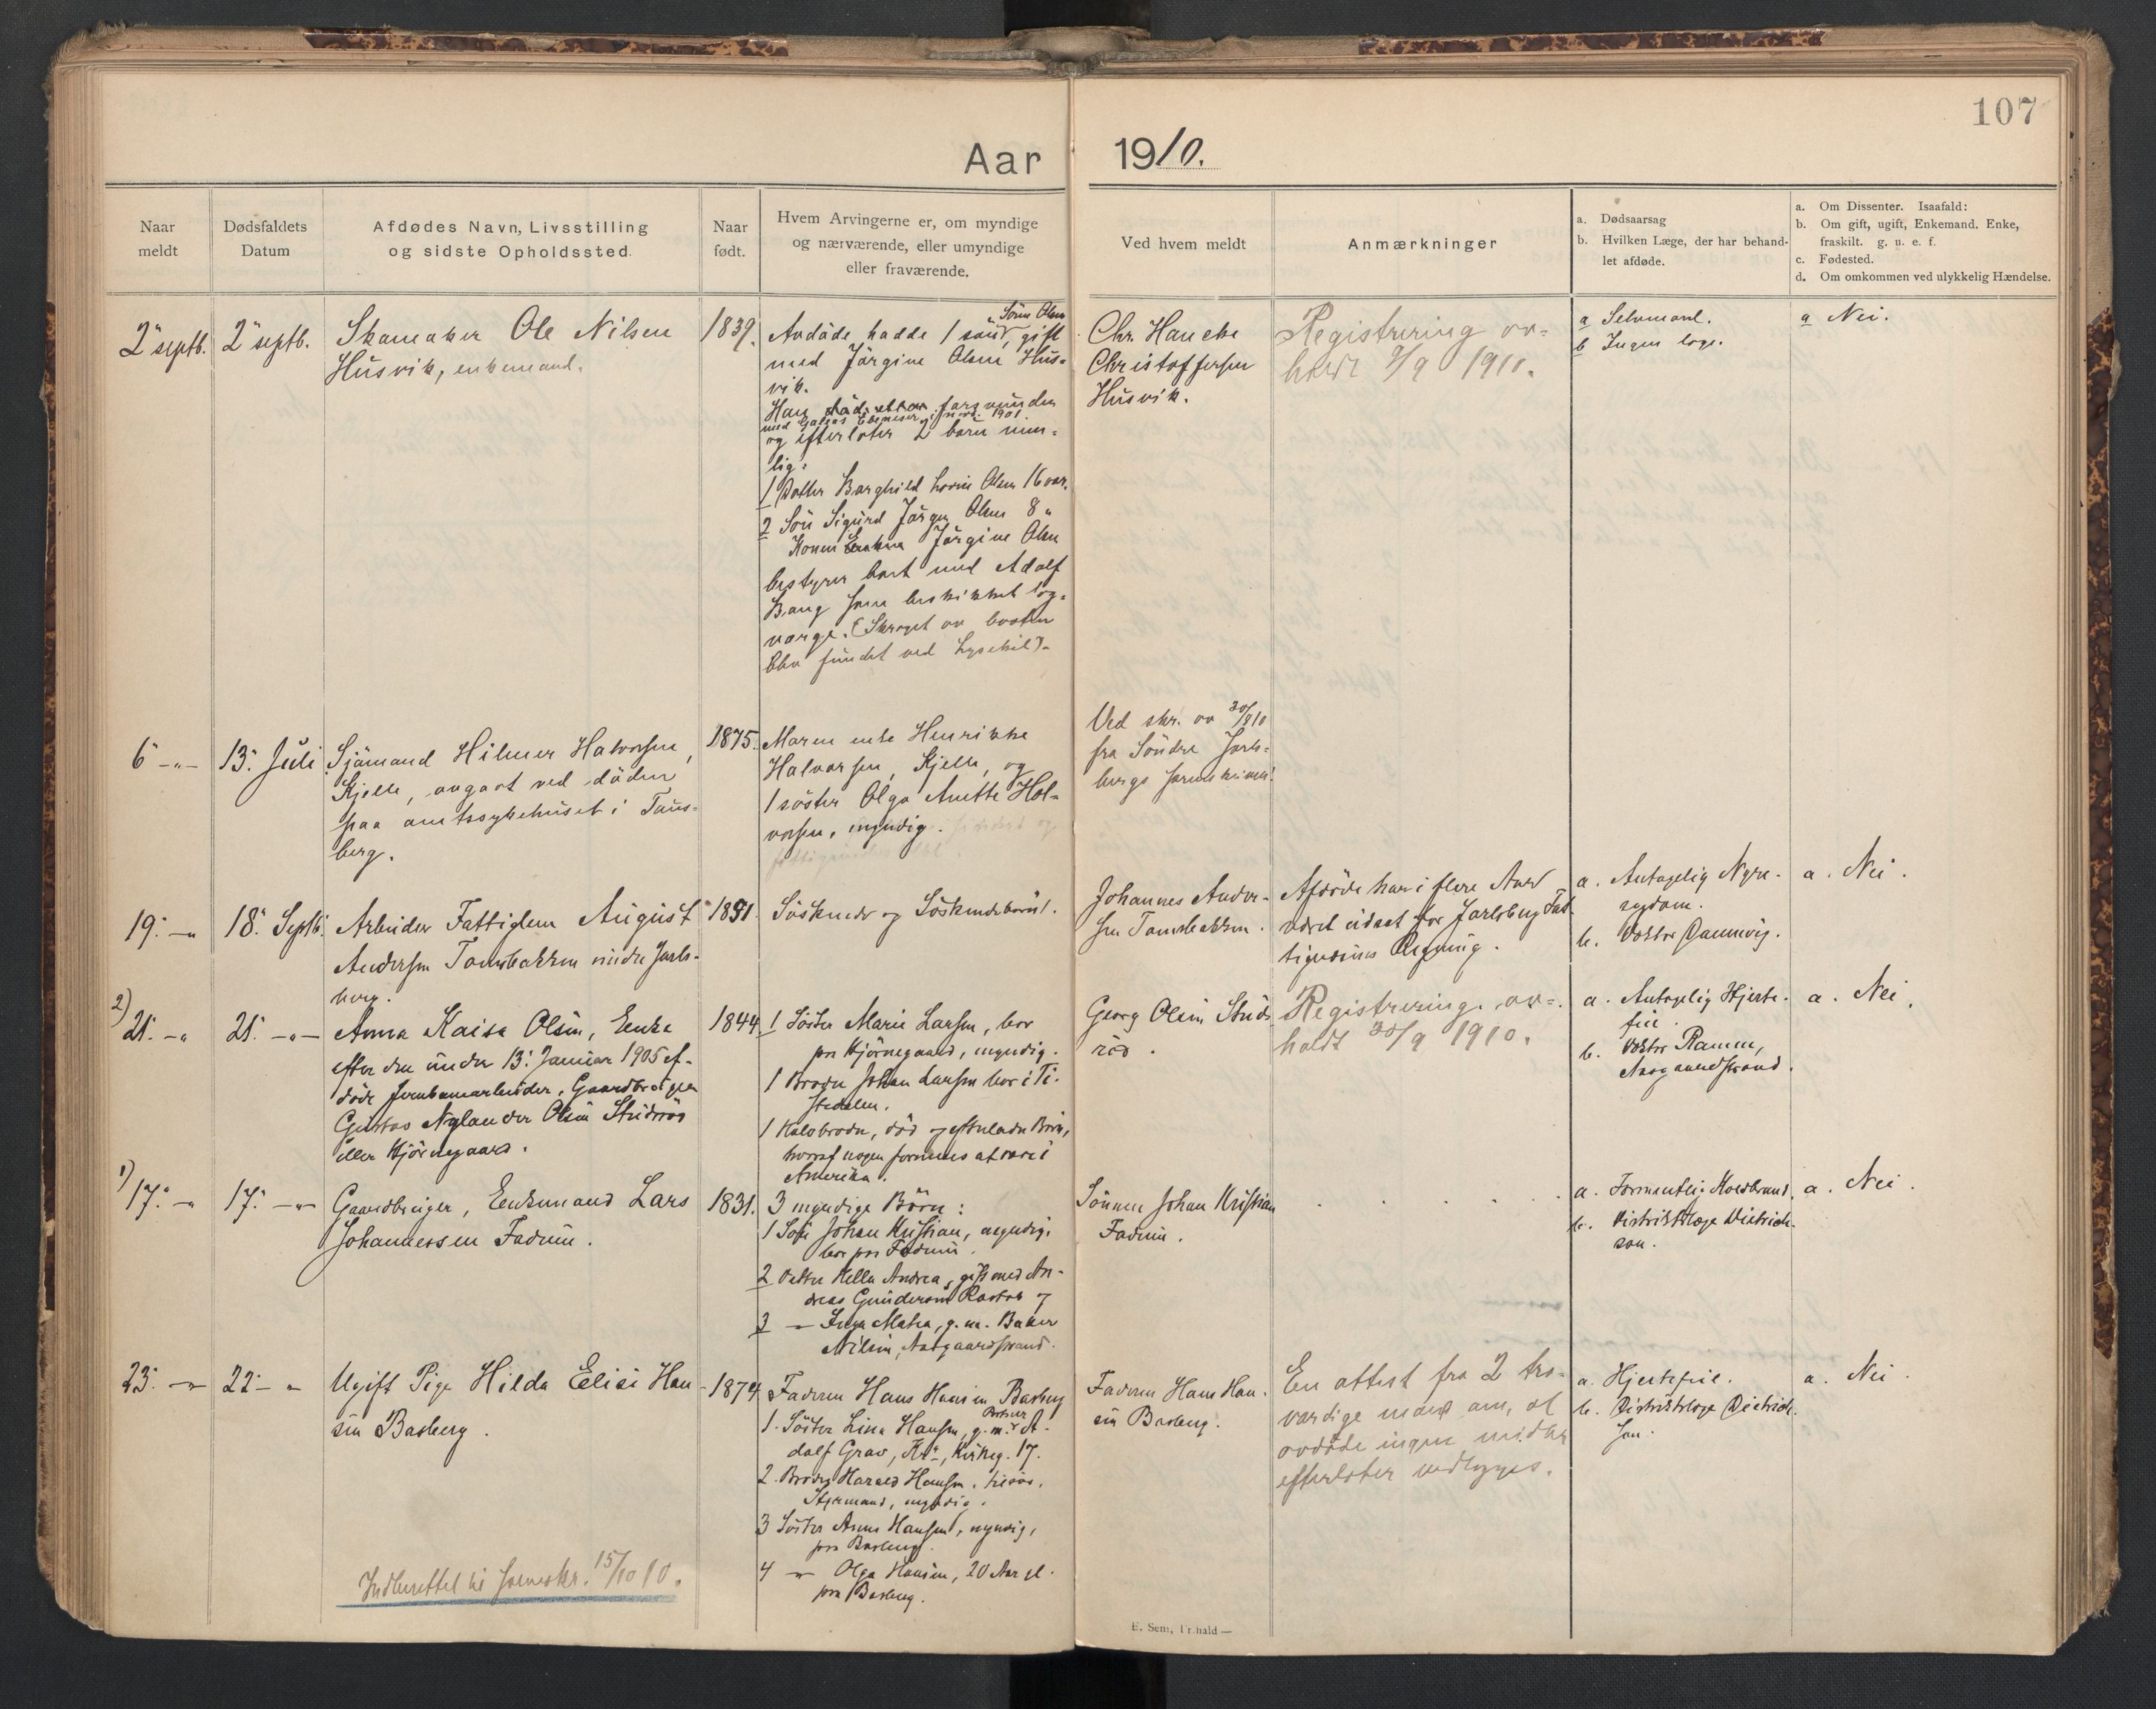 107
Aar 1910.
Naar meldt
Dødsfaldets Datum
Afdødes Navn, Livsstilling og sidste Opholdssted.
Naar født.
Hvem Arvingerne er, om myndige og nærværende, eller umyndige eller fraværende.
Ved hvem meldt
Anmærkninger
a. Dødsaarsag
b. Hvilken Læge, der har behand-
let afdøde.
a. Om Dissenter. Isaafald:
b. Om gift, ugift, Enkemand, Enke,
fraskilt. g. u. e. f.
c. Fødested.
d. Om omkommen ved ulykkelig Hændelse.
2 septb.
2 septb.
Skomaker Ole Nilsen
Husvik, enkemand.
1839.
Sören Olsen
Avdöde hadde 1 sön, gift
med Jörgine Olsen Hus-
vik.
Han forsvunden
med i novb. 1901
og efterlater 2 barn nem-
lig:
1 Datter Borghild Olsen 16 aar.
2 Sön Sigurd Jörgen Olsen 8 "
Konen Jörgine Olsen
bestyrer boet med Adolf
Bang som beskikket log-
værge. (Skroget av baaten
blev fundet ved Lysekil).
Chr. Hancke
Christoffersen
Husvik.
Registrering av-
holdt 9/9 1910.
a Selvmord.
b Ingen læge.
a Nei.
6 -"-
13. Juli
Sjömand Hilmer Halvorsen,
Kjelle, avgaat ved döden
paa amtssykehuset i Töns-
berg.
1875.
Moren enke Henrikke
Halvorsen, Kjelle, og
1 söster Olga Anette Hal-
vorsen, myndig.
Ved skr. av 30/8 10
fra Söndre Jarls-
bergs sorenskriveri.
19. -"
18. Septb.
Arbeider Fattiglem August
Andersen Tomsbakken Jarls-
berg.
1851.
Söskende og Söskendebörn.
Johannes Ander-
sen Tomsbakken.
Afdöde har i flere Aar
været udsat for Jarlsberg Fat-
tigvæsens Regning.
a. Antagelig Nyre-
sygdom.
b. Doktor Dannevig.
a. Nei.
2)
21. -"
21. -"-
Anna Kaisa Olsen, Enke
efter den under 13. Januar 1905 af-
döde Jernbanearbeider, Gaardbruger
Gustav Nylander Olsen Studsröd
eller Hjörnegaard.
1844.
1 Söster Marie Larsen, bor
paa Hjörnegaard, myndig.
1 Broder Johan Larsen bor i Ti-
stedalen.
1 Halvbroder, död og efterladte Börn,
hvoraf nogen formenes at være i
Amerika.
Georg Olsen Studs-
röd.
Registrering av-
holdt 30/9 1910.
a. Antagelig Hjerte-
feil.
b. Doktor Ramm,
Aasgaardstrand.
a. Nei.
1)
17. -"
17. -"-
Gaardbruger, Enkemand Lars
Johannessen Fadum.
1831.
3 myndige Börn:
1 Sön Johan Kristian, myndig,
bor paa Fadum.
2 Datter Hella Andrea, gift med An-
dreas Gundersen Rostad og
3 -"- Inga Matea, g. m. Baker
Nilsen, Aasgaardstrand.
Sönnen Johan Kristian
Fadum.
a. Formentlig Koldbrand.
b. Distriktslæge Dietrich-
son.
a. Nei.
23. -"-
22 - "
Ugift Pige Hilda Elise Han-
sen Basberg.
1874.
Faderen Hans Hansen Basberg
1. Söster Lina Hansen, g. m. A-
dolf Grav, Kra, Kirkeg. 17.
2. Broder Harald Hansen, tilsös,
Styrmand, myndig.
3 Söster Anna Hansen, myndig,
paa Basberg.
4 -"- Olga Hansen, 20 Aar gl.
paa Basberg.
Faderen Hans Han-
sen Basberg.
En attest fra 2 tro-
værdige mænd om, at
avdöde ingen midler
efterlater vedlægges.
a. Hjertefeil.
b. Distriktslæge Dietrich-
son.
a. Nei.
Indberettet til sorenskr. 15/10 10.
E. Sem, Fr.hald —